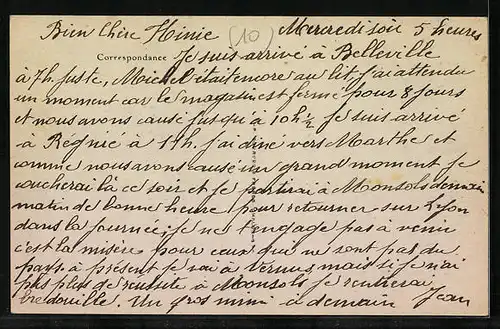 Bien Chère Ninie (10) Mercredi soir 5 heures
Correspondance Je suis arrivé à Belleville
à 7h juste, Michel était encore au lit j'ai attendu
un moment car le magasin est fermé pour 8 jours
et nous avons causé jusqu'à 10h ½ je suis arrivé
à Régnié à 11h. j'ai diné vers Marthe et
comme nous avons causé un grand moment je
coucherai là ce soir et je partirai à Monsols demain
matin de bonne heure pour retourner sur Lyon
dans la journée, je ne t'engage pas à venir
c'est la misère pour ceux qui ne sont pas du
pays à présent je vai à mais si je n'ai
pas plus de réussite à Monsols je rentrerai
bredouille. Un gros mimi à demain Jean